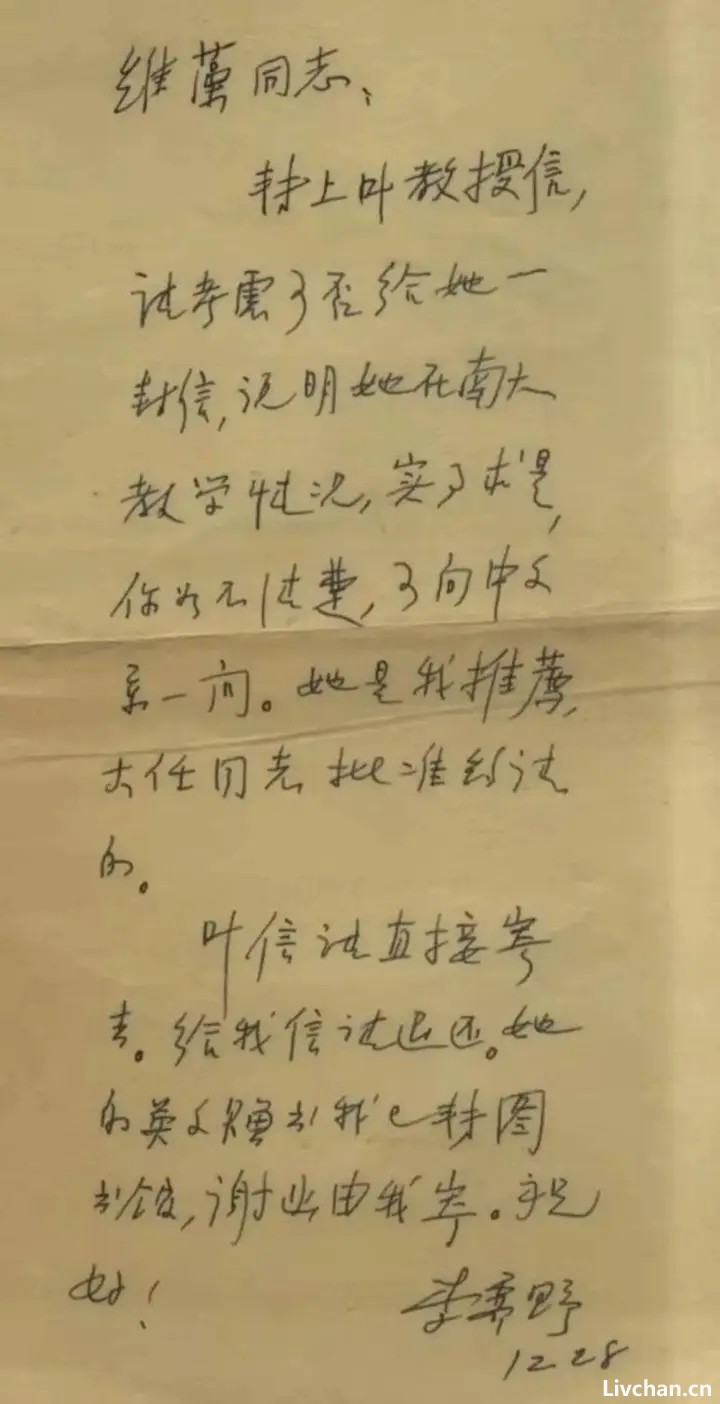 维藻同志：
转上叶教授信，
请考虑可否给她一
封信，说明她在南大
教学情况，实事求是，
你如不清楚，可向中文
系一问。她是我推荐，
大任同志批准邀请
的。
叶信请直接寄
去。给我信请退还。她
的英文赠书我已转图
书馆，谢函由我寄。祝
好！
李霁野
12 28
Livchan.cn